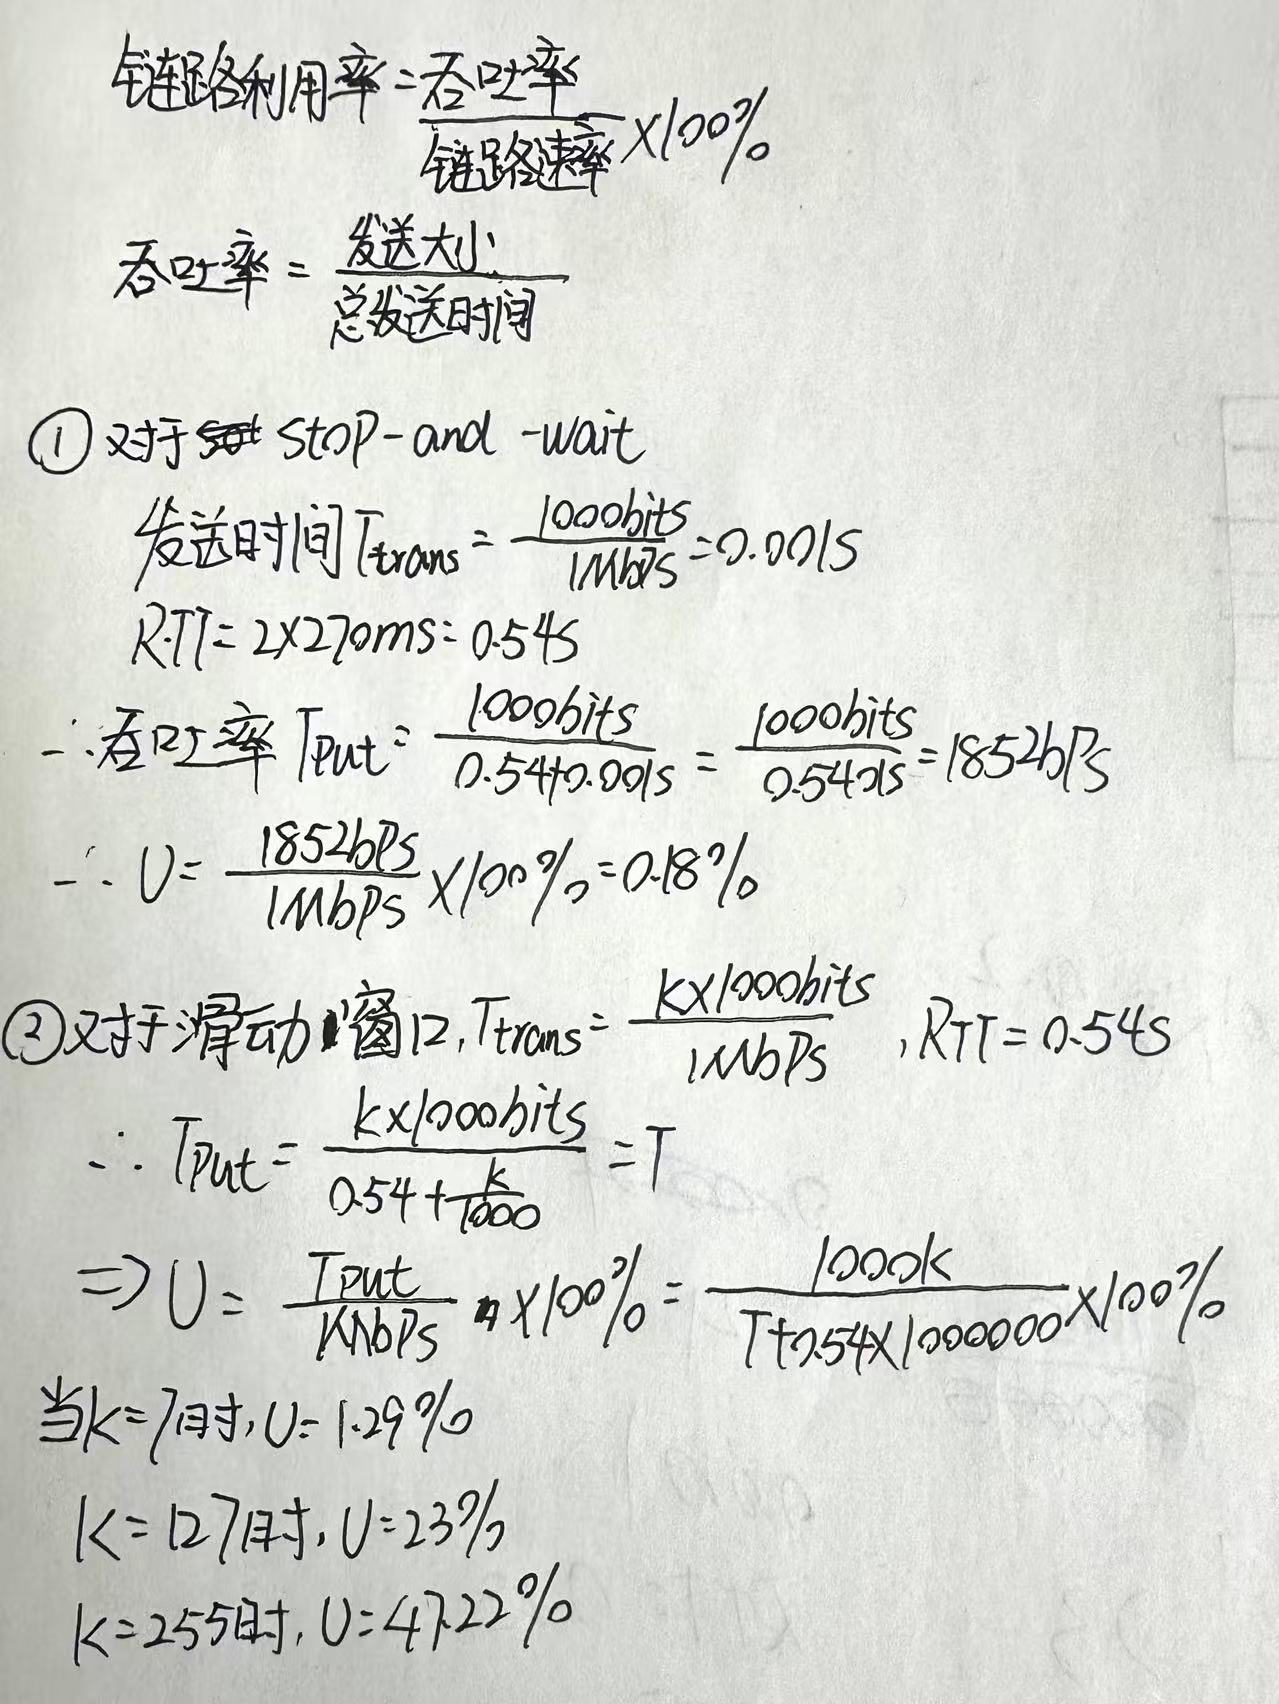 链路利用率 = 吞吐率/链路速率 ×100%
吞吐率 = 发送大小/总发送时间
① 对于 stop-and-wait
发送时间 Ttrans = 1000bits/1Mbps = 0.001s
RTT = 2×270ms = 0.54s
∴ 吞吐率 Tput = 1000bits/0.54+0.001s = 1000bits/0.5401s = 1852bps
∴ U = 1852bps/1Mbps ×100% = 0.18%
② 对于滑动窗口, Ttrans = k×1000bits/1Mbps , RTT = 0.54s
∴ Tput = k×1000bits/0.54+k/1000 = T
⇒ U = Tput/Mbps ×100% = 1000k/T+0.54×1000000 ×100%
当k=7时, U=1.29%
k=127时, U=23%
k=255时, U=47.22%